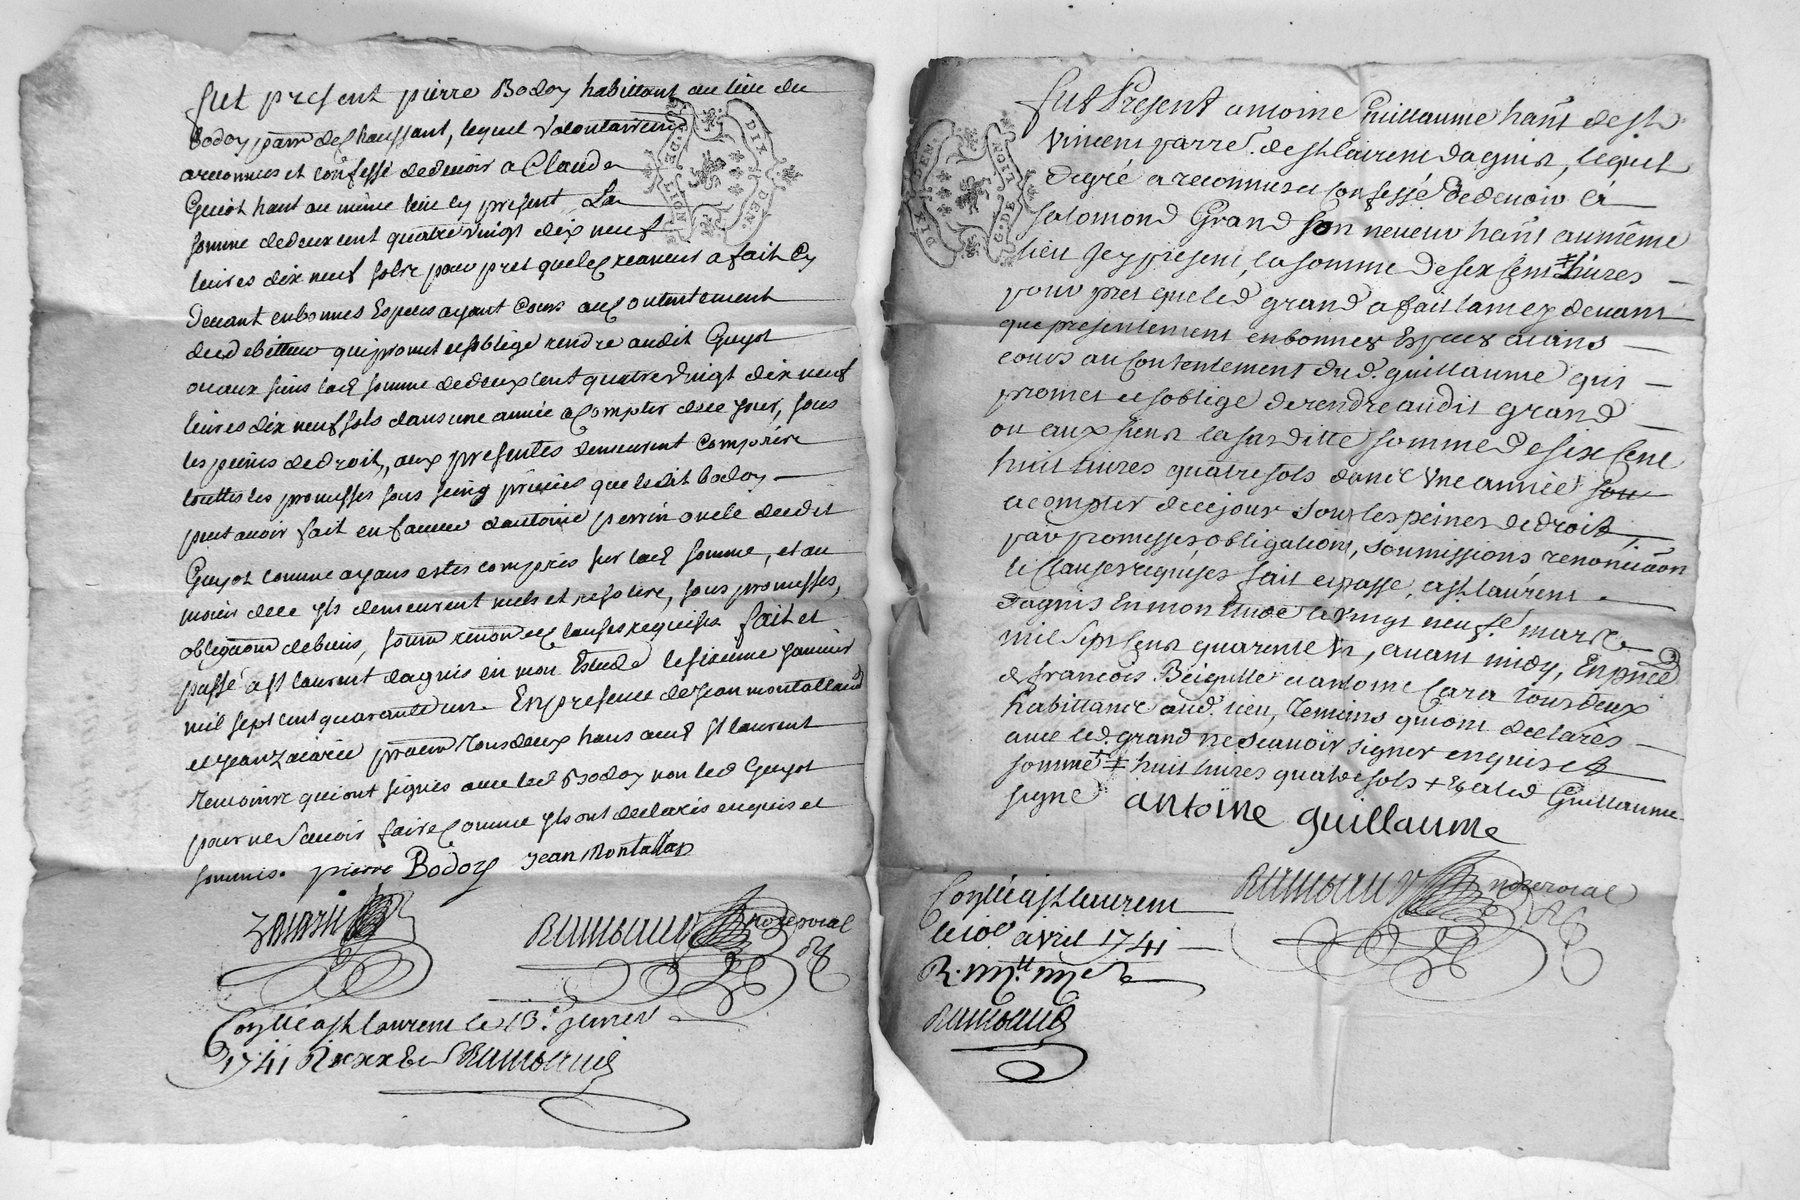 fut present pierre Bodoy habittant au lieu du
Bodoy parr. de Chaussant, lequel volontairemt
a reconnus et confessé de devoir a Claude
Guiot hant au même lieu cy present, La
somme de deux cent quatre vingt dix neuf
livres dix neuf sols pour pret que led a fait cy
devant en bonnes Especes ayant Cours au contentement
dud debitteur qui promet et s'oblige rendre audit Guyot
ou aux siens lad somme de deux cent quatre vingt dix neuf
livres dix neuf sols dans une année a compter de ce jour, sous
les peines de droit, aux presentes demeurent comprise
touttes les promesses sous seing privées que ledit bodoy
peut avoir fait en faveur d'antoine perrin oncle dudit
Guyot comme ayans estés comprises sur lad somme, et au
moien de ce yls demeurent nuls et resolus, sous promesses,
obligations de biens, soum renon et clauses requises fait et
passé a st laurent dagnis en mon Estude le sixieme janvier
mil sept cent quarante un. En presence de Jean montalland
et Jean Zacarie tous deux hans aud st laurent
temoins qui ont signés avec led Bodoy non led Guyot
pour ne savoir faire comme yls ont declarés enquis et
sommés. pierre Bodoy Jean Montallan
Zacarie Raimbaud nore royal
Conllé a st laurent le 13e janvier
1741 R Raimbaud
G. DE LYON DIX DEN.
fut Present antoine Guillaume hant de st
Vincent parre. de st laurent dagnis, lequel
de gré a reconnus et confessé de devoir à
salomond Grand son neveu hant au même
lieu Jcy present, la somme de six cent ‡ livres
pour pret que led grand a fait tant cy devant
que presentement en bonnes Especes aians
cours au contentement dud. guillaume qui
promet et s'oblige de rendre audit grand
ou aux siens la susditte somme de six cent
huit livres quatre sols dans Une année
a compter de ce jour sous les peines de droit,
par promesses obligations, soumissions renonciaon
et clauses requises fait et passé, a st laurent
dagnis En mon Etude le vingt neufe mars
mil sept cent quarente Un, avant midy, En pnce
de francois Beiquille et antoine Cara tous deux
habittants aud. lieu, temoins qui ont declarés
avec led. grand ne scavoir signer enquis et
sommés ‡ huit livres quatre sols + Et a led Guillaume
signé antoine guillaume
Raimbaud nore royal
Conllé a st laurent
le 10e avril 1741
Raimbaud
G. DE LYON DIX DEN.